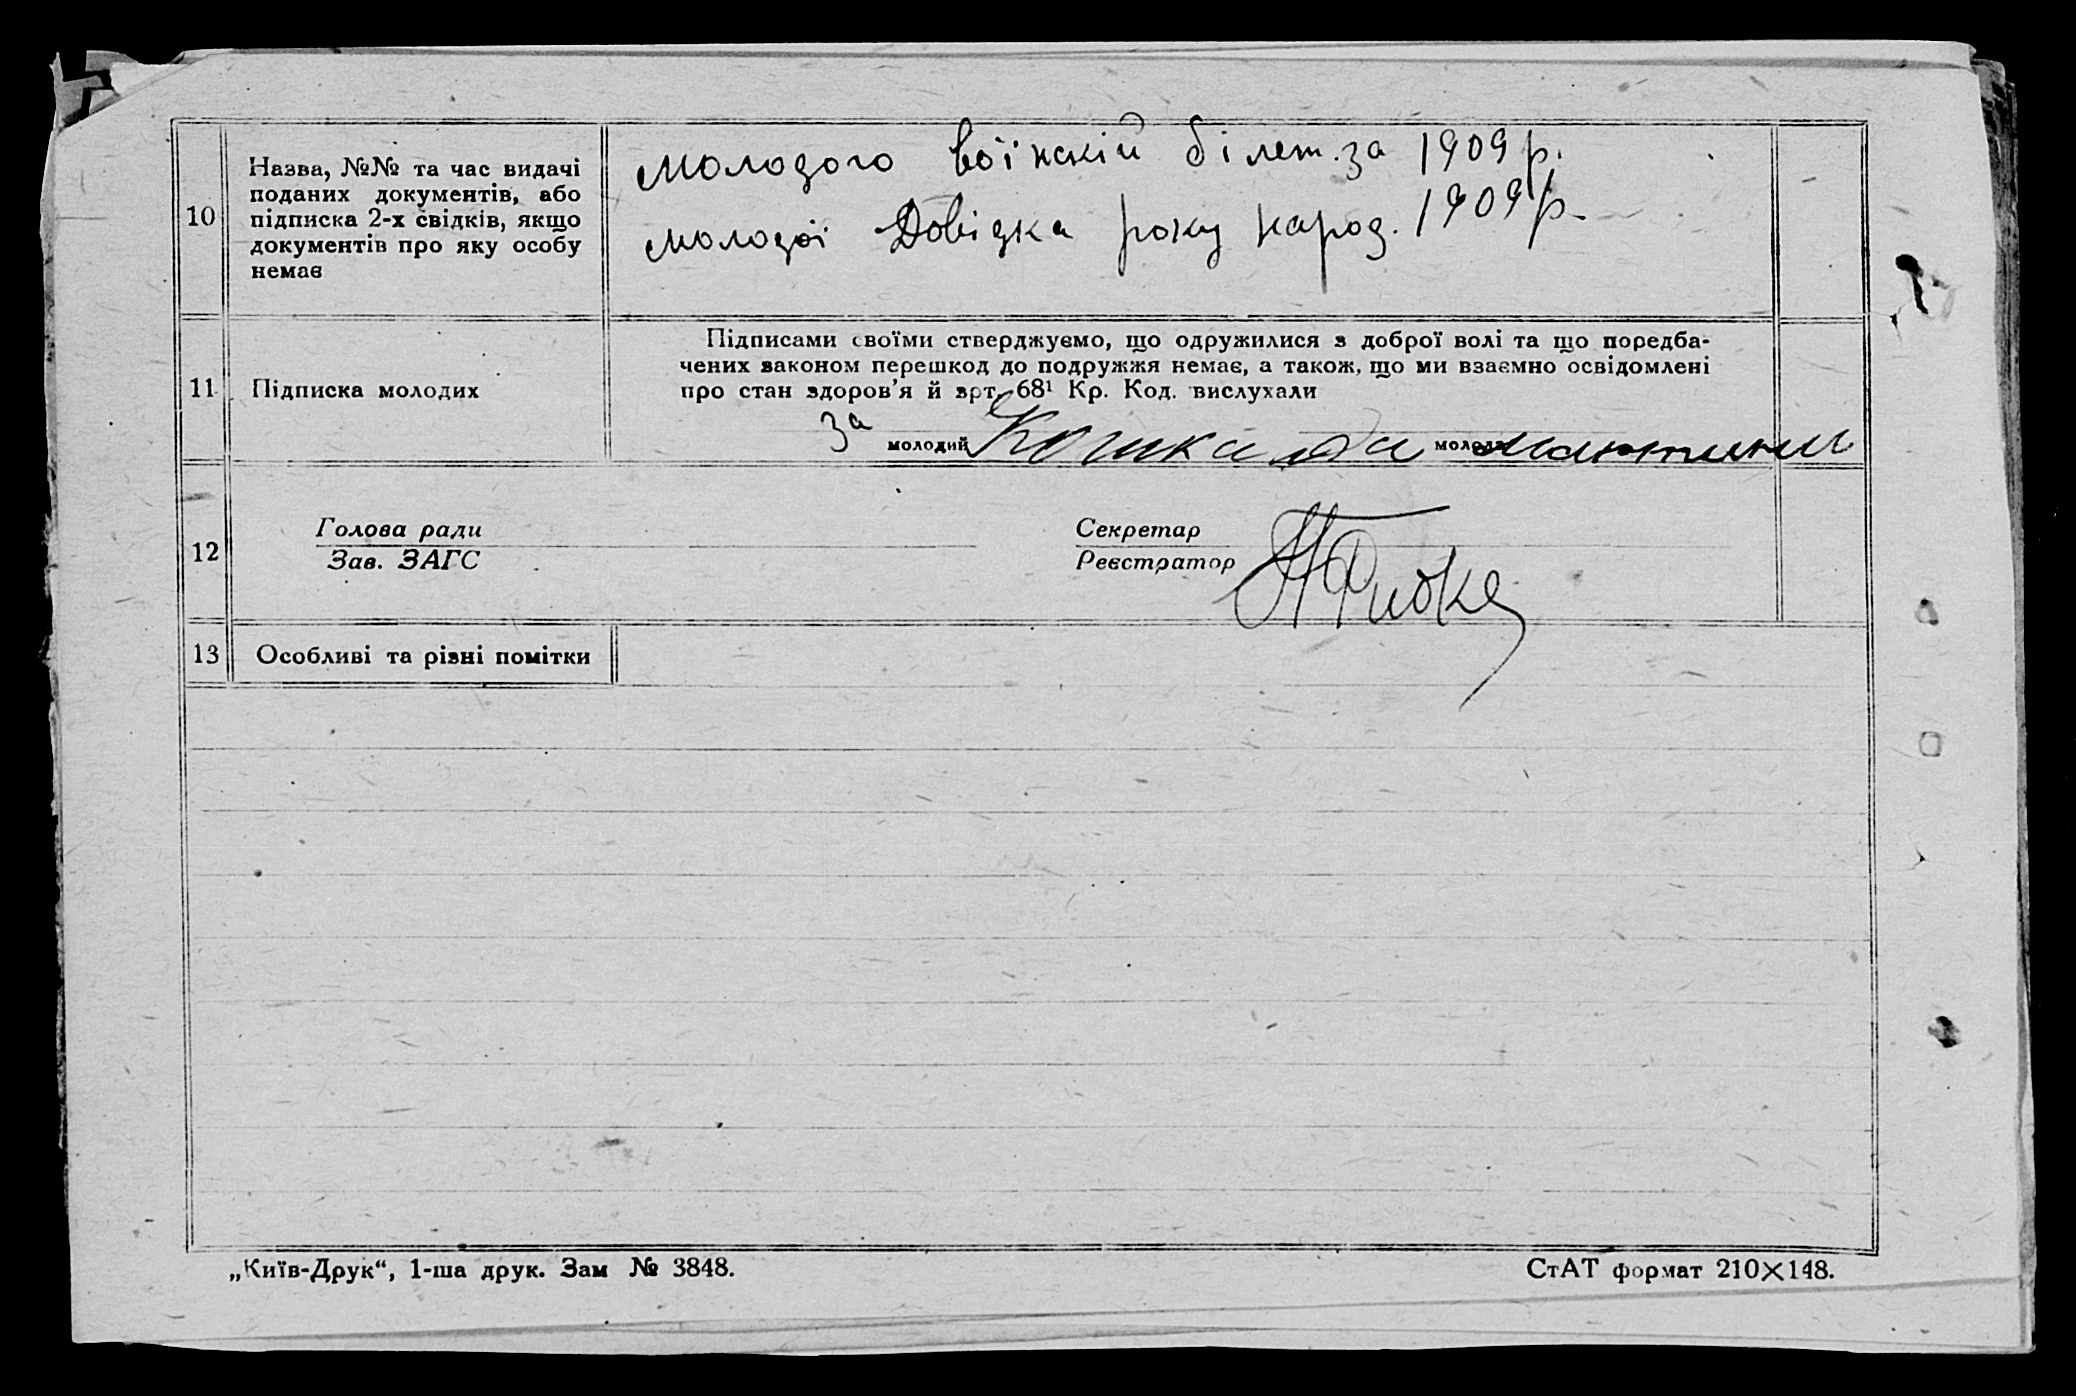 10
Назва, №№ та час видачі
поданих документів, або
підписка 2-х свідків, якщо
документів про яку особу
немає
молодого воїнскій білет. за 1909 р.
молодої Довідка року народ. 1909 р.
11
Підписка молодих
Підписами своїми стверджуємо, що одружилися з доброї волі та що поредба-
чених законом перешкод до подружжя немає, а також, що ми взаємно освідомлені
про стан здоров'я й арт. 68¹ Кр. Код. вислухали
За молодий Кошкалда молода
12
Голова ради
Зав. ЗАГС
Секретар
Реєстратор
13
Особливі та різні помітки
„Київ-Друк“, 1-ша друк. Зам № 3848.
СтАТ формат 210×148.